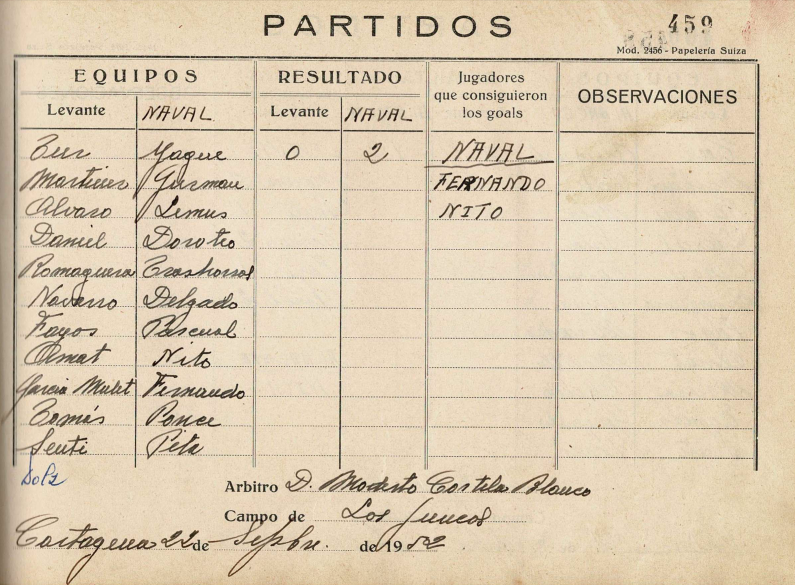 PARTIDOS
459
Mod. 2456 - Papelería Suiza
EQUIPOS RESULTADO Jugadores que consiguieron los goals OBSERVACIONES
Levante NAVAL Levante NAVAL
Yague 0 2 NAVAL
Martinez Guzman FERNANDO
Alvaro Lemus NITO
Daniel Doroteo
Romaguera Trashorras
Navarro Delgado
Fayos Pascual
Asmat Nito
Garcia Mulet Fernando
Tomás Ponce
Senti Pita
Arbitro D. Modesto Costila Blanco
Campo de Los Juncos
Cartagena 22 de Sepbre. de 1952